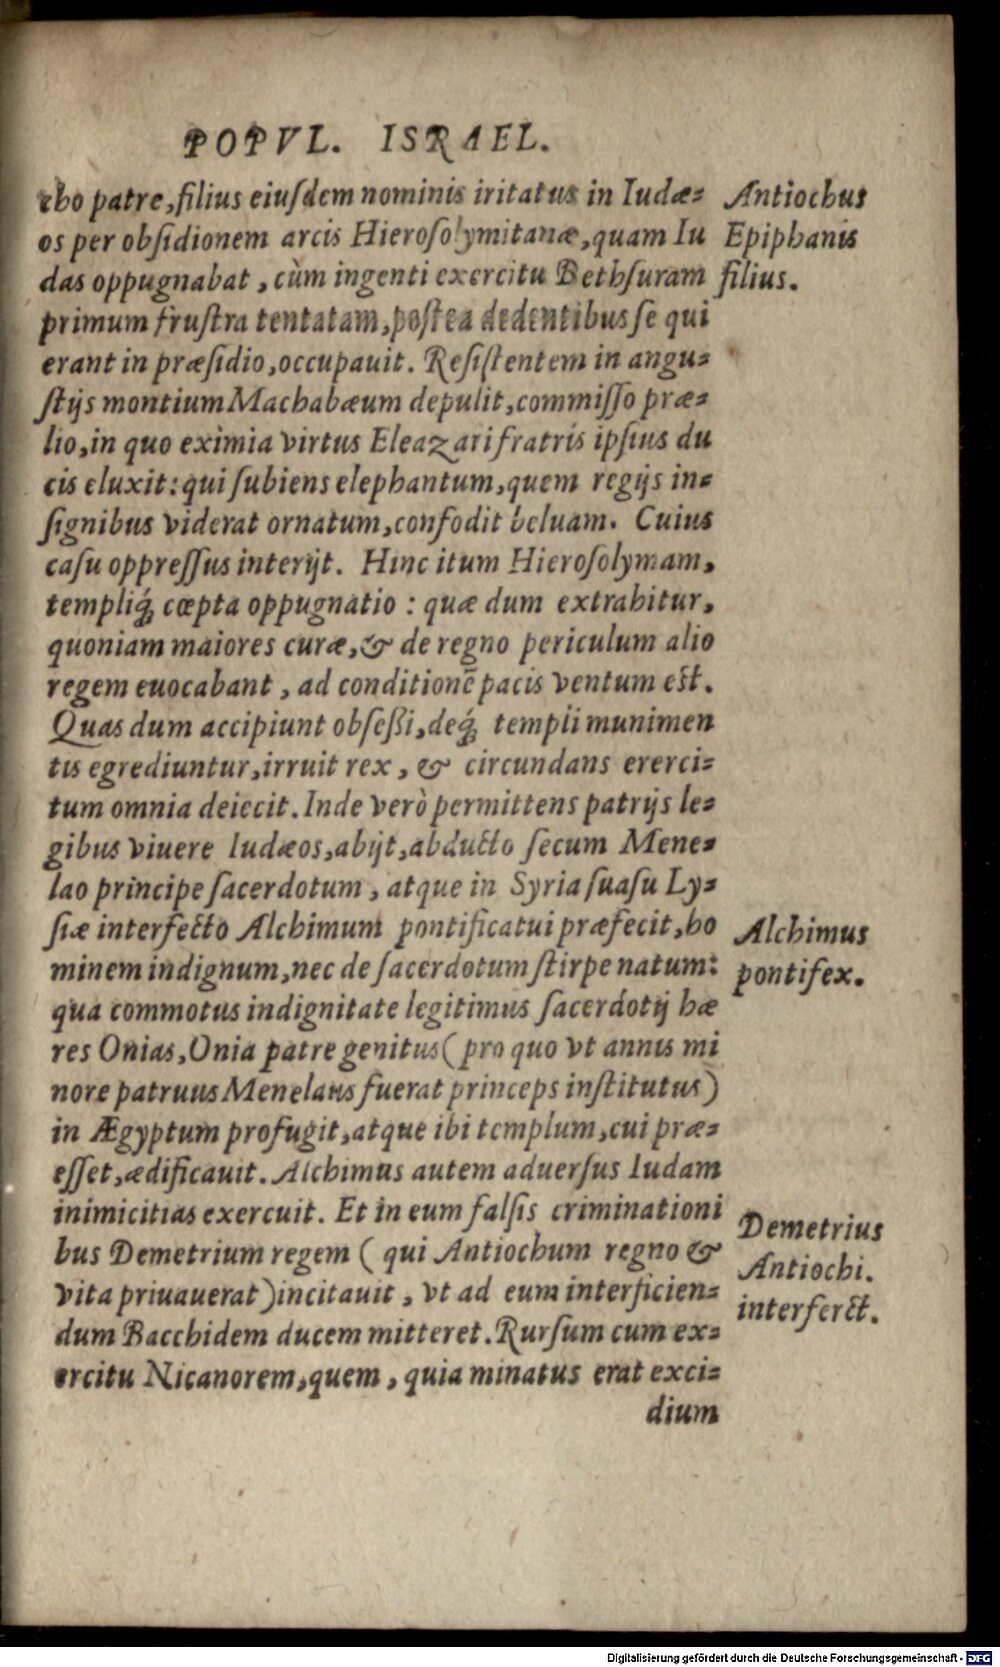 POPVL. ISRAEL.
cho patre, filius eiusdem nominis iritatus in Iudæ=
os per obsidionem arcis Hierosolymitanæ, quam Iu
das oppugnabat, cùm ingenti exercitu Bethsuram
primum frustra tentatam, postea dedentibus se qui
erant in præsidio, occupauit. Resistentem in angu=
stijs montium Machabæum depulit, commisso præ=
lio, in quo eximia virtus Eleazari fratris ipsius du
cis eluxit: qui subiens elephantum, quem regijs in=
signibus viderat ornatum, confodit beluam. Cuius
casu oppressus interijt. Hinc itum Hierosolymam,
templiq́; cœpta oppugnatio: quæ dum extrahitur,
quoniam maiores curæ, & de regno periculum alio
regem euocabant, ad conditionē pacis ventum est.
Quas dum accipiunt obseßi, deq́; templi munimen
tis egrediuntur, irruit rex, & circundans ererci=
tum omnia deiecit. Inde verò permittens patrijs le=
gibus viuere Iudæos, abijt, abducto secum Mene=
lao principe sacerdotum, atque in Syria suasu Ly=
siæ interfecto Alchimum pontificatui præfecit, ho
minem indignum, nec de sacerdotum stirpe natum:
qua commotus indignitate legitimus sacerdotij hæ
res Onias, Onia patre genitus (pro quo vt annis mi
nore patruus Menelaus fuerat princeps institutus)
in Ægyptum profugit, atque ibi templum, cui præ=
esset, ædificauit. Alchimus autem aduersus Iudam
inimicitias exercuit. Et in eum falsis criminationi
bus Demetrium regem (qui Antiochum regno &
vita priuauerat) incitauit, vt ad eum interficien=
dum Bacchidem ducem mitteret. Rursum cum ex=
ercitu Nicanorem, quem, quia minatus erat exci=
dium
Antiochus
Epiphanis
filius.
Alchimus
pontifex.
Demetrius
Antiochi.
interferct.
Digitalisierung gefördert durch die Deutsche Forschungsgemeinschaft - DFG